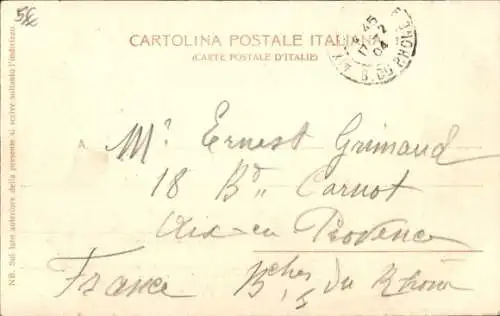 CARTOLINA POSTALE ITALIANA
(CARTE POSTALE D'ITALIE)
45
17 2
04
B. DU RHONE
NB. Sul lato anteriore della presente si scrive soltanto l'indirizzo.
A Mr. Ernest Grimaud
18 Bd. Carnot
Aix-en Provence
France Bches du Rhône